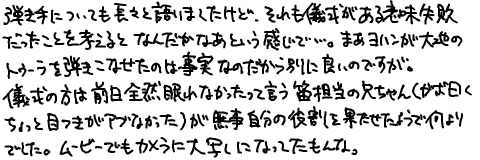 弾き手についても長々と語りましたけど、それも儀式がある意味失敗
だったことを考えると なんだかなあという感じで…。まあヨハンが大地の
トゥーラを弾きこなせたのは事実なのだから別に良いのですが。
儀式の方は前日全然眠れなかったって言う笛担当の兄ちゃん(かず曰く
ちょっと目つきがアブなかった)が無事自分の役割を果たせたようで何より
でした。ムービーでもカメラに大写しになってたもんな。